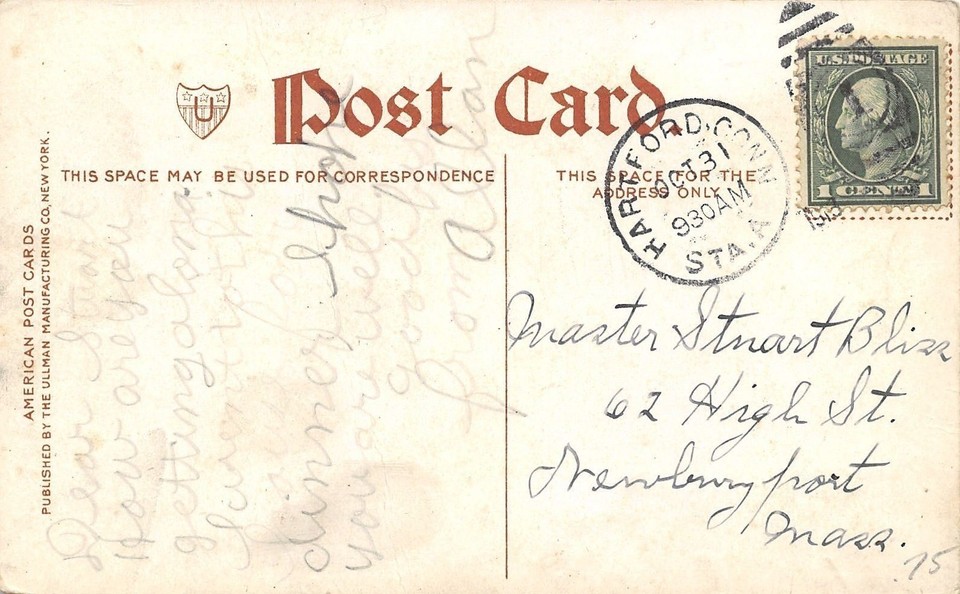 Post Card
U
THIS SPACE MAY BE USED FOR CORRESPONDENCE
THIS SPACE FOR THE
ADDRESS ONLY
AMERICAN POST CARDS
PUBLISHED BY THE ULLMAN MANUFACTURING CO, NEW YORK.
HARTFORD. CONN
OCT 31
930 AM
STA. A
U.S. POSTAGE
1 CENT 1
Dear Stuart
How are you
getting along
dinner I hope
you are well
good bye
from Allan
Master Stuart Bliss
62 High St.
Newburyport
Mass.
75